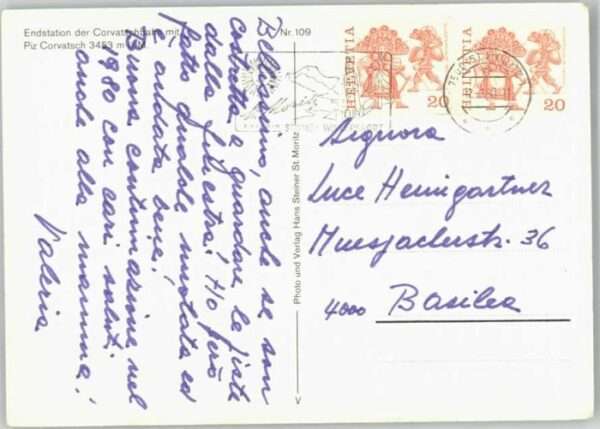 Endstation der Corvatschbahn mit
Piz Corvatsch 3453 m
Nr. 109
HELVETIA 20
HELVETIA 20
Bellissimo, anche se son
costretta a guardare le piste
dalla finestra! Ho però
fatto qualche nuotata ed
è andata bene.
Buona continuazione nel
1980 con cari saluti
anche alla mamma!
Valeria
Photo und Verlag Hans Steiner St. Moritz
V
Signora
Luce Heimgartner
36
4000 Basilea